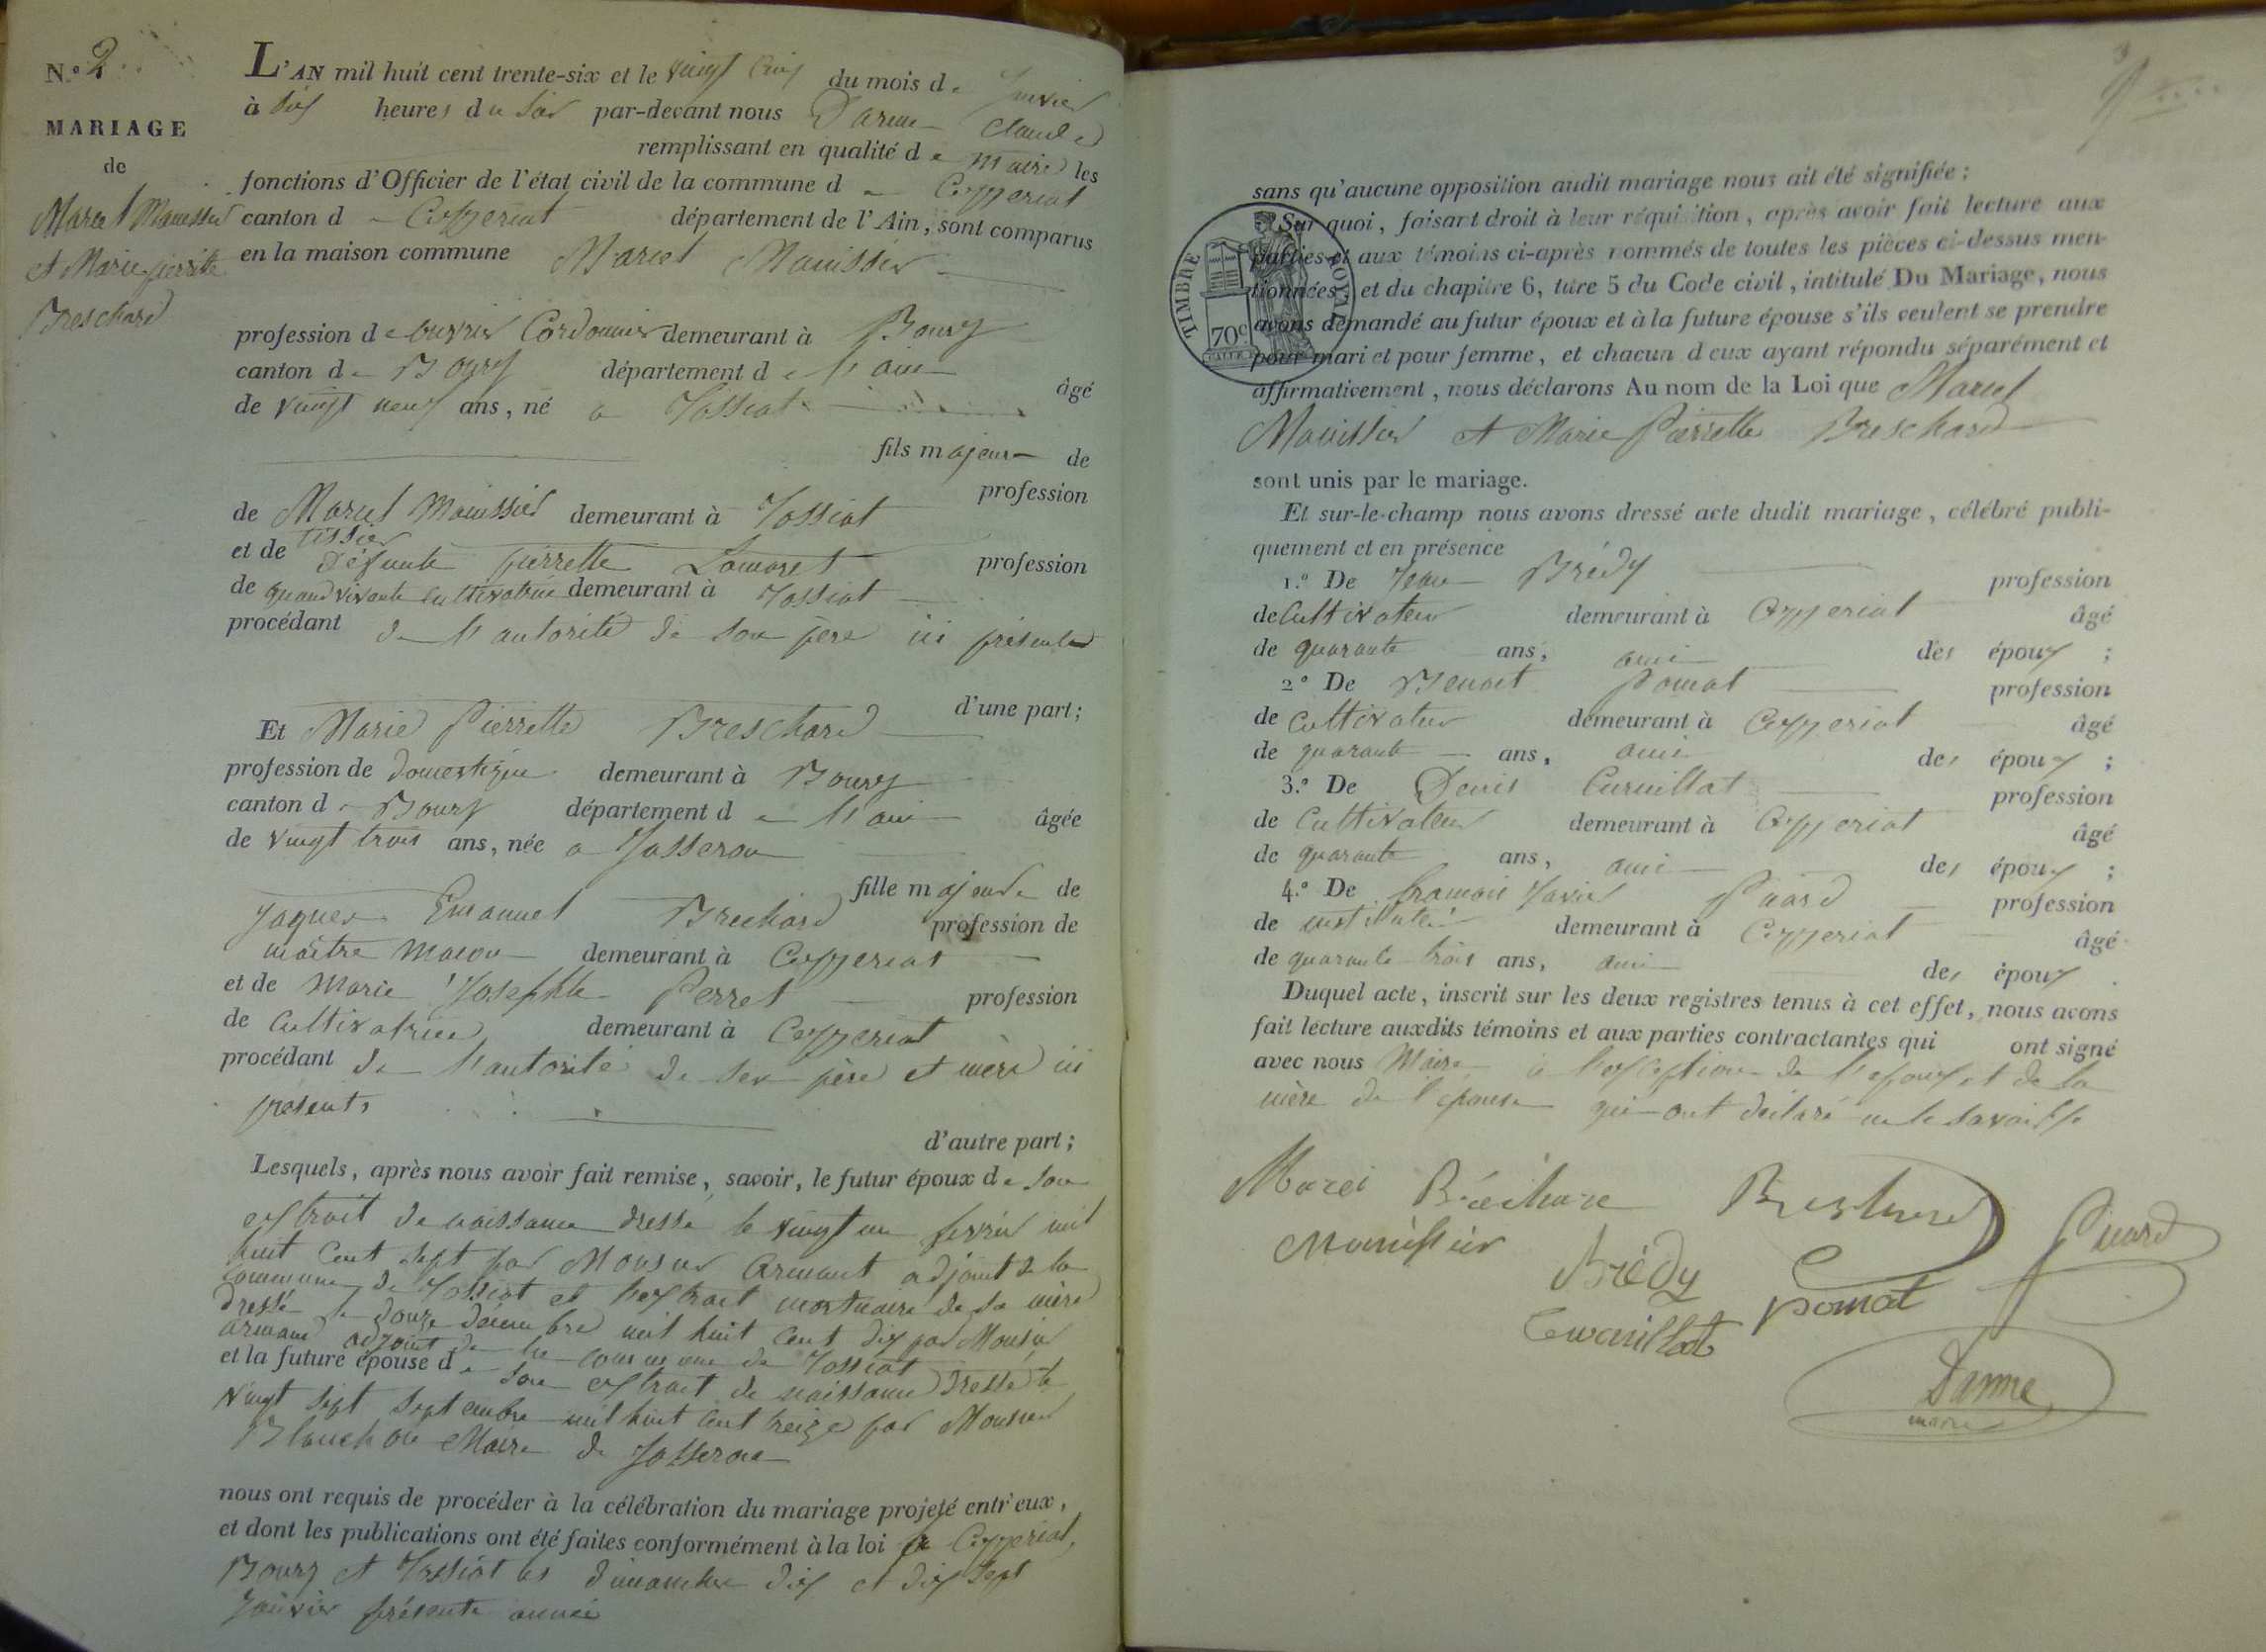 N.o 2
MARIAGE
de
Marcel Manissier
et Marie pierrette
Breschard
L'AN mil huit cent trente-six et le vingt cinq du mois de Janvier
à six heures du soir par-devant nous Darme Claude
remplissant en qualité de maire les
fonctions d'Officier de l'état civil de la commune de Ceyzeriat
canton de Ceyzeriat département de l'Ain, sont comparus
en la maison commune Marcel Manissier
profession de ouvrier Cordonnier demeurant à Bourg
canton de Bourg département de l'ain
âgé
de vingt neuf ans, né a Jossiat
fils majeur de
profession
de Marcel Manissier demeurant à Jossiat
tissier
et de Défunte pierrette Lomoret profession
de quand vivante cultivatrice demeurant à Jossiat
procédant de l'autorité de son père ici présent
d'une part;
Et Marie Pierrette Breschard
profession de domestique demeurant à Bourg
canton de Bourg département de l'ain âgée
de vingt trois ans, née a Jasseron
fille majeure de
Jaques Emanuel Brechard profession de
maître maçon demeurant à Ceyzeriat
et de Marie Josephte Perret profession
de Cultivatrice demeurant à Ceyzeriat
procédant de l'autorité de ses père et mère ici
présents
d'autre part;
Lesquels, après nous avoir fait remise, savoir, le futur époux de son
extrait de naissance dressé le vingt un fevrier mil
huit cent sept par Monsieur Armant adjoint de la
commune de Jossiat et l'extrait mortuaire de sa mère
dressé le douze décembre mil huit cent dix par Monsieur
armand adjoint de la commune de Jossiat
et la future épouse de son extrait de naissance dressé le
vingt sept septembre mil huit cent treize par Monsieur
Blanchon Maire de Jasseron
nous ont requis de procéder à la célébration du mariage projeté entr'eux,
et dont les publications ont été faites conformément à la loi a Ceyzeriat,
Bourg et Jossiat les dimanches dix et dix sept
Janvier présente année
sans qu'aucune opposition audit mariage nous ait été signifiée;
Sur quoi, faisant droit à leur réquisition, après avoir fait lecture aux
parties et aux témoins ci-après nommés de toutes les pièces ci-dessus men-
tionnées, et du chapitre 6, titre 5 du Code civil, intitulé Du Mariage, nous
avons demandé au futur époux et à la future épouse s'ils veulent se prendre
pour mari et pour femme, et chacun d'eux ayant répondu séparément et
affirmativement, nous déclarons Au nom de la Loi que Marcel
Manissier et Marie Pierrette Breschard
TIMBRE ROYAL
70c
sont unis par le mariage.
Et sur-le-champ nous avons dressé acte dudit mariage, célébré publi-
quement et en présence
1.o De Jean Brédy profession
de Cultivateur demeurant à Ceyzeriat âgé
de quarante ans, ami des époux;
2.o De Benoit Pomat profession
de Cultivateur demeurant à Ceyzeriat âgé
de quarante ans, ami des époux;
3.o De Denis Curnillat profession
de Cultivateur demeurant à Ceyzeriat âgé
de quarante ans, ami des époux;
4.o De francois Xavier Puard profession
de instituteur demeurant à Ceyzeriat âgé
de quarante trois ans, ami des époux.
Duquel acte, inscrit sur les deux registres tenus à cet effet, nous avons
fait lecture auxdits témoins et aux parties contractantes qui ont signé
avec nous Maire à l'exception de l'epouse et de la
mère de l'épouse qui ont déclaré ne le savoir
Marcel Bréchard Breschard Puard
Manissier
Brédy Pomat
Curnillat
Darme
maire